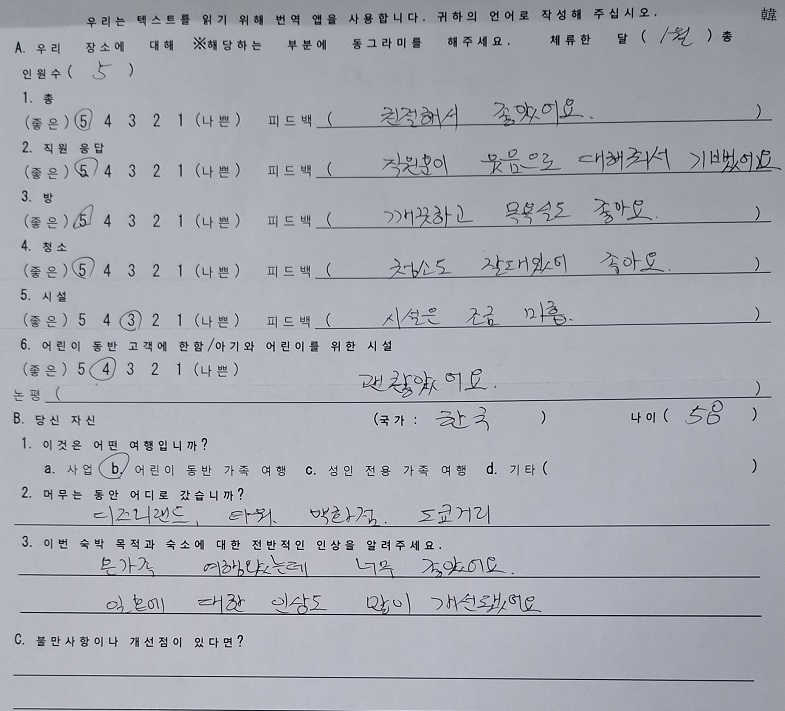 우리는 텍스트를 읽기 위해 번역 앱을 사용합니다. 귀하의 언어로 작성해 주십시오. 韓
A. 우리 장소에 대해 ※해당하는 부분에 동그라미를 해주세요. 체류한 달 ( 1월 ) 총
인원수 ( 5 )
1. 총
(좋은) 5 4 3 2 1 (나쁜) 피드백 ( 친절해서 좋았어요. )
2. 직원 응답
(좋은) 5 4 3 2 1 (나쁜) 피드백 ( 직원분이 웃음으로 대해줘서 기뻤어요
3. 방
(좋은) 5 4 3 2 1 (나쁜) 피드백 ( 깨끗하고 목욕실도 좋아요. )
4. 청소
(좋은) 5 4 3 2 1 (나쁜) 피드백 ( 청소도 잘돼있어 좋아요. )
5. 시설
(좋은) 5 4 3 2 1 (나쁜) 피드백 ( 시설은 조금 미흡. )
6. 어린이 동반 고객에 한함/아기와 어린이를 위한 시설
(좋은) 5 4 3 2 1 (나쁜)
논평 ( 괜찮았어요. )
B. 당신 자신 (국가: 한국 ) 나이 ( 58 )
1. 이것은 어떤 여행입니까?
a. 사업 b. 어린이 동반 가족 여행 c. 성인 전용 가족 여행 d. 기타 ( )
2. 머무는 동안 어디로 갔습니까?
디즈니랜드, 타워. 백화점. 도쿄거리
3. 이번 숙박 목적과 숙소에 대한 전반적인 인상을 알려주세요.
온가족 여행왔는데 너무 좋았어요.
일본에 대한 인상도 많이 개선됐어요
C. 불만사항이나 개선점이 있다면?